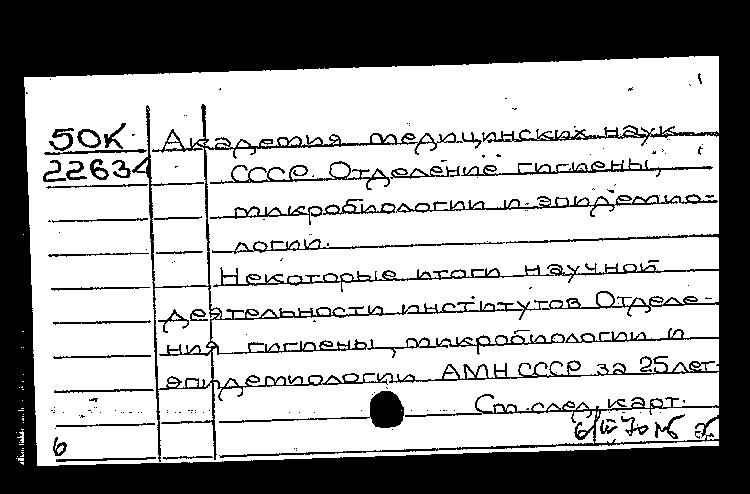 50К Академия медицинских наук
22634 СССР. Отделение гигиены,
микробиологии и эпидемио-
логии.
Некоторые итоги научной
деятельности институтов Отделе-
ния гигиены, микробиологии и
эпидемиологии АМН СССР за 25 лет
См. след. карт.
6